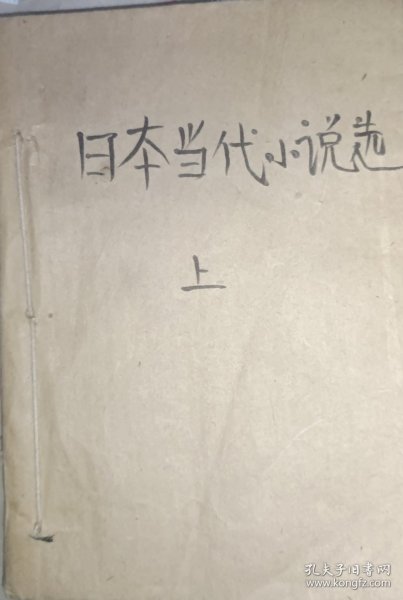 日本当代小说选
上
孔夫子旧书网
kongfz.com